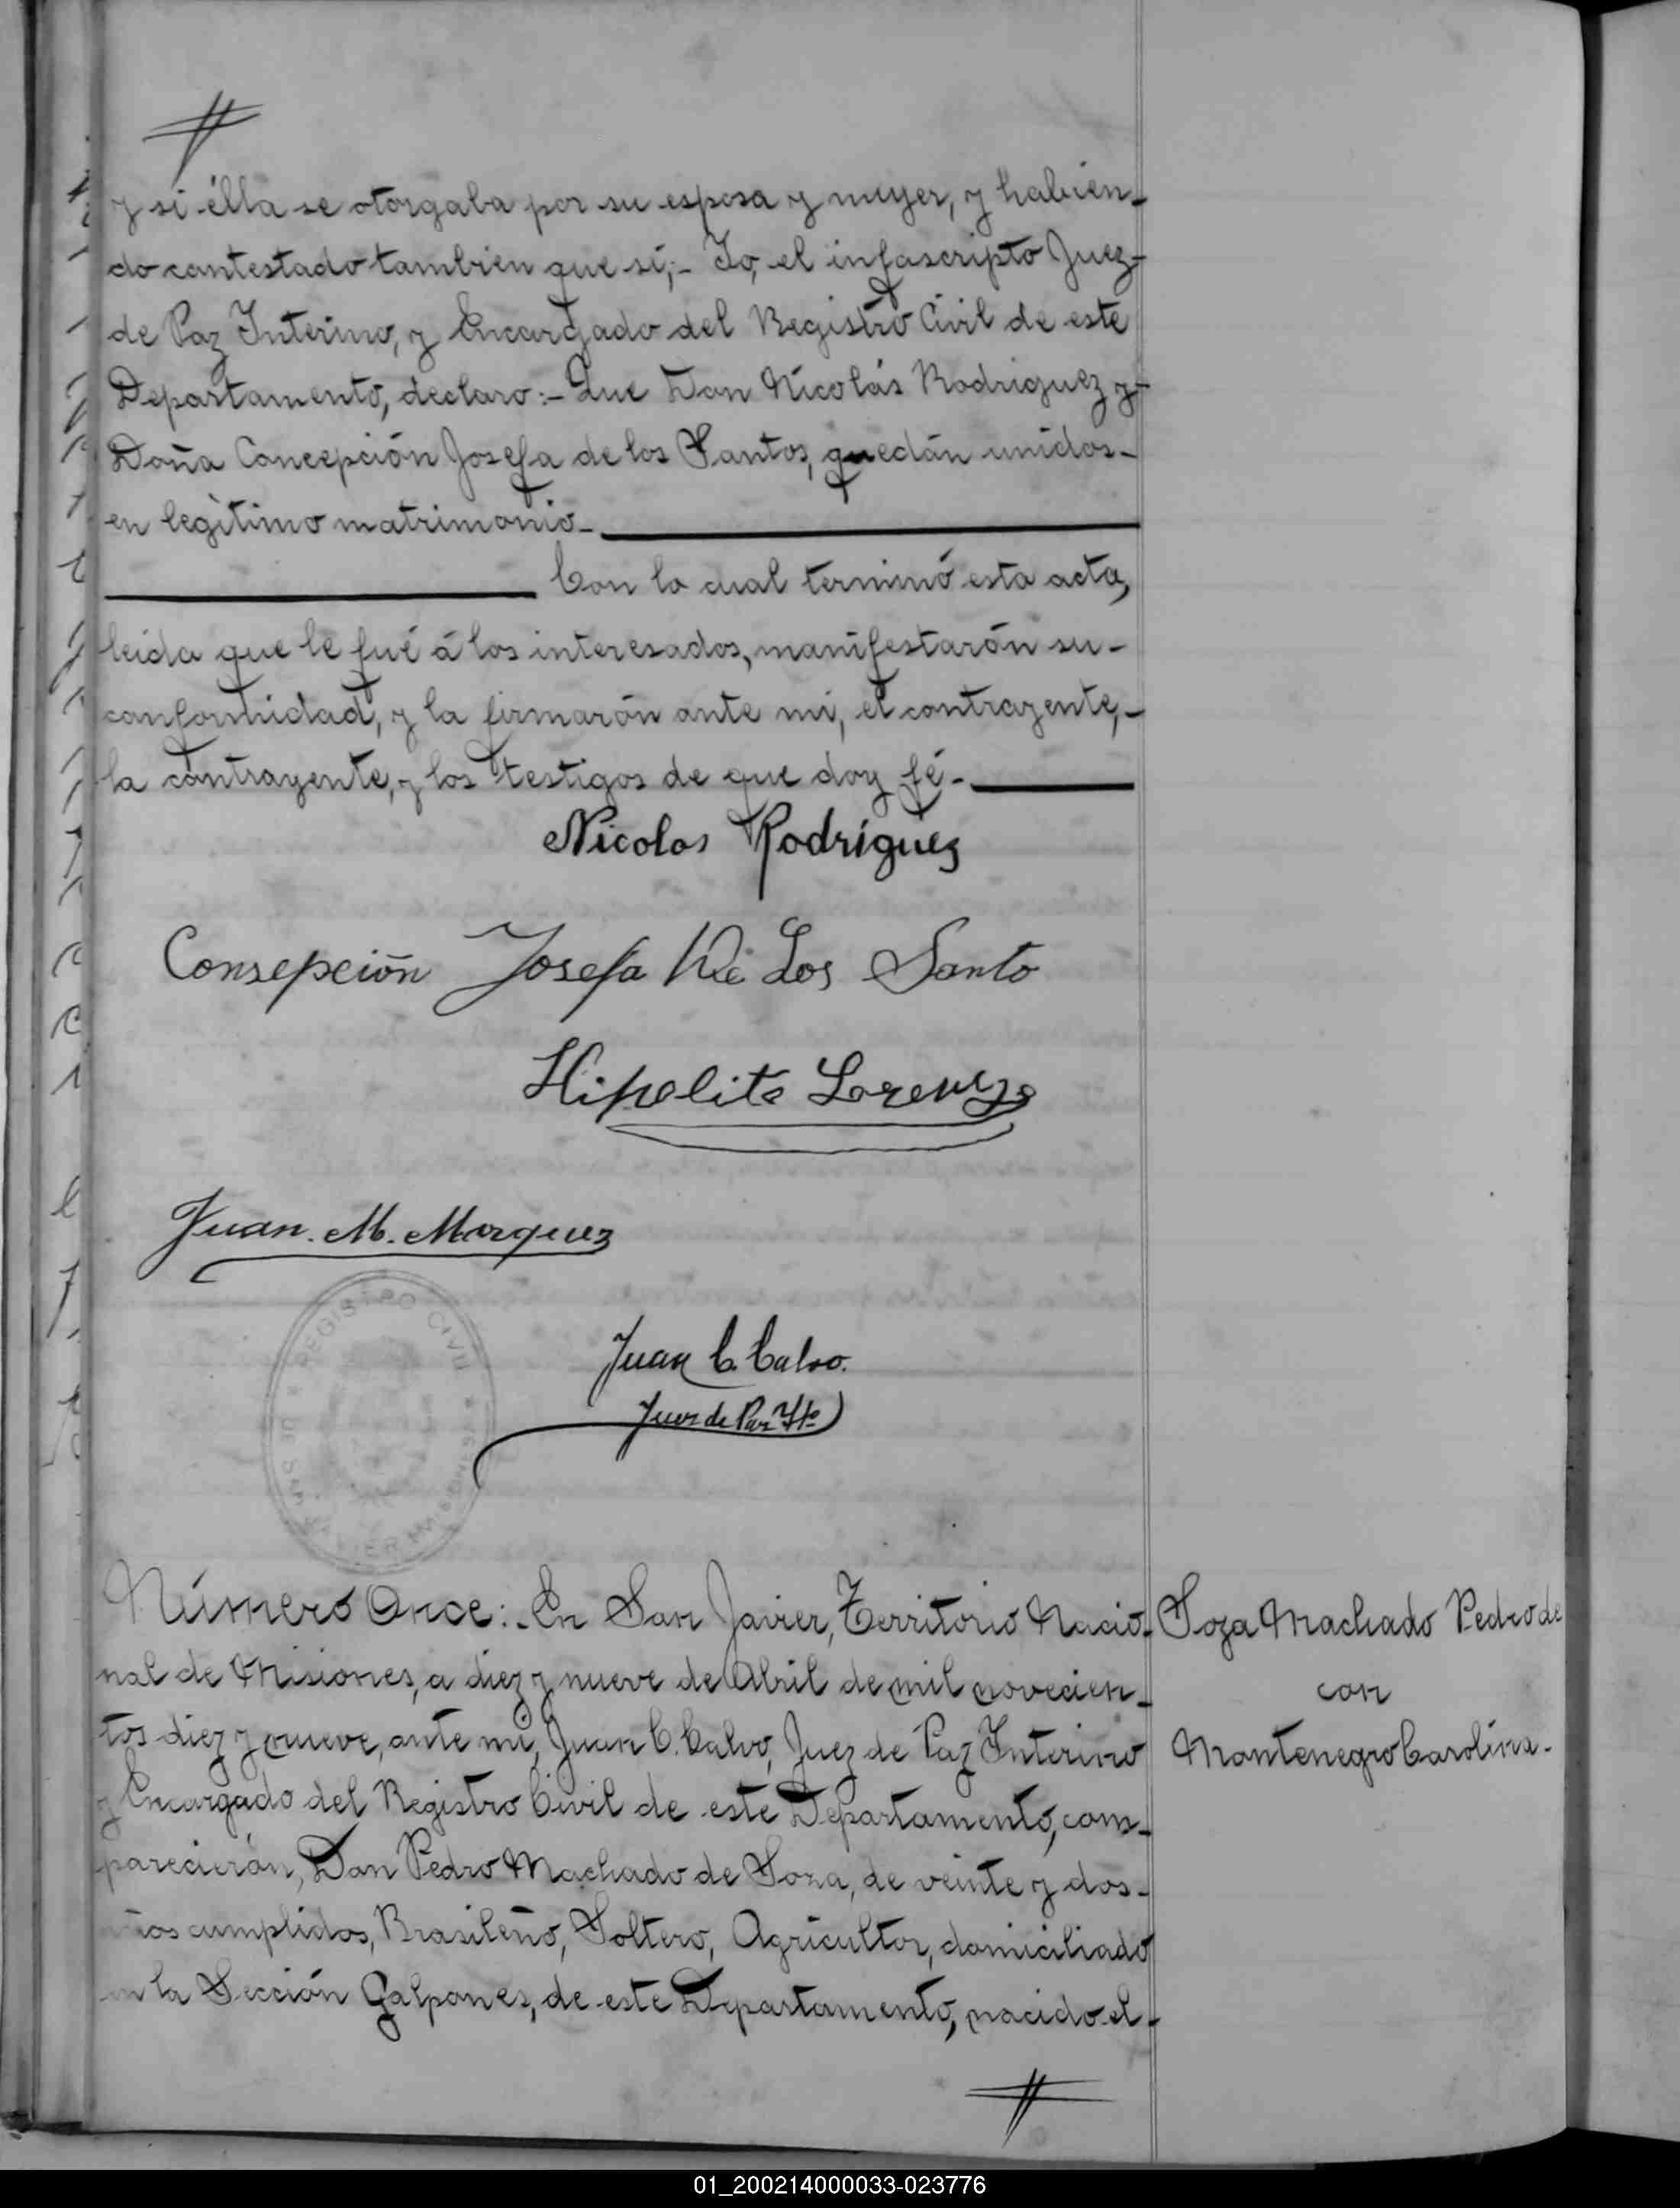 y si élla se otorgaba por su esposa y mujer, y habien-
do contestado tambien que si;- Yo, el infascripto Juez-
de Paz Interino, y Encargado del Registro Civil de este
Departamento, declaro:- Que Don Nicolás Rodriguez y-
Doña Concepción Josefa de los Santos, quedán unidos-
en legítimo matrimonio-
Con lo cual terminó esta acta,
leida que le fué á los interesados, manifestarón su-
conformidad, y la firmarón ante mi, el contrayente,-
la contrayente, y los testigos de que doy fé-
Nicolas Rodriguez
Consepción Josefa De Los Santo
Hipolito Lorenzo
Juan. M. Marquez
REGISTRO CIVIL
Juan C. Calvo.
Juez de Paz Itº
Número Once:- En San Javier, Territorio Nacio-
nal de Misiones, a diez y nueve de Abril de mil novecien-
tos diez y nueve, ante mi, Juan C. Calvo, Juez de Paz Interino
y Encargado del Registro Civil de este Departamento, com-
parecierón, Don Pedro Machado de Soza, de veinte y dos-
años cumplidos, Brasileño, Soltero, Agricultor, domiciliado
en la Sección Galpones, de este Departamento, nacido el-
Soza Machado Pedro de
con
Montenegro Carolina-
01_200214000033-023776